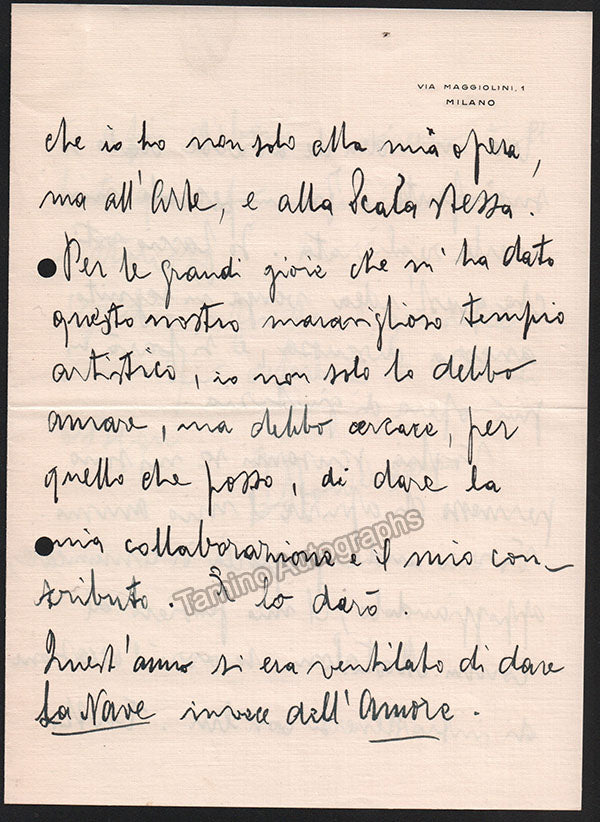 VIA MAGGIOLINI, 1
MILANO
che io ho non solo alla mia opera,
ma all'Arte, e alla Scala stessa.
Per le grandi gioie che m'ha dato
questo nostro maraviglioso tempio
artistico, io non solo lo debbo
amare, ma debbo cercare, per
quello che posso, di dare la
mia collaborazione e il mio con-
tributo. E lo darò.
Quest'anno si era ventilato di dare
La Nave invece dell'Amore.
Tamino Autographs